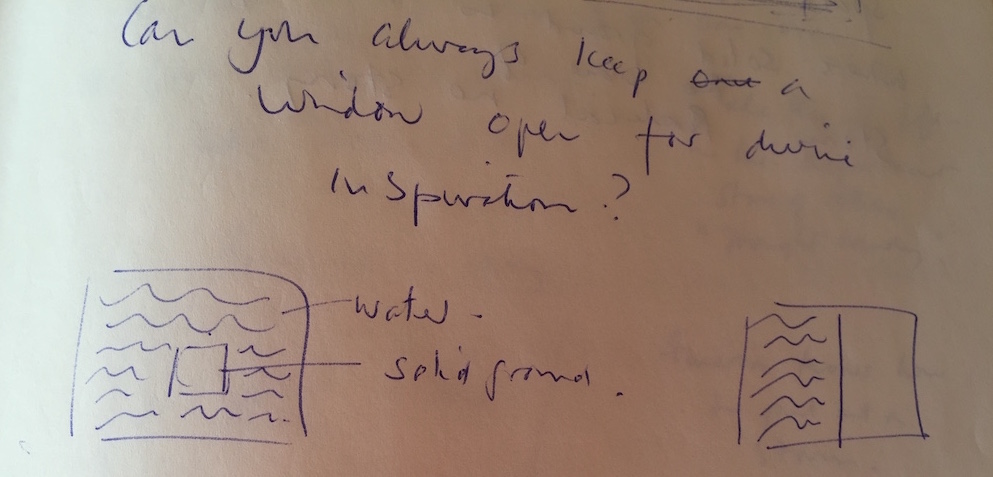 Can you always keep a
window open for divine
inspiration?
water -
solid ground.